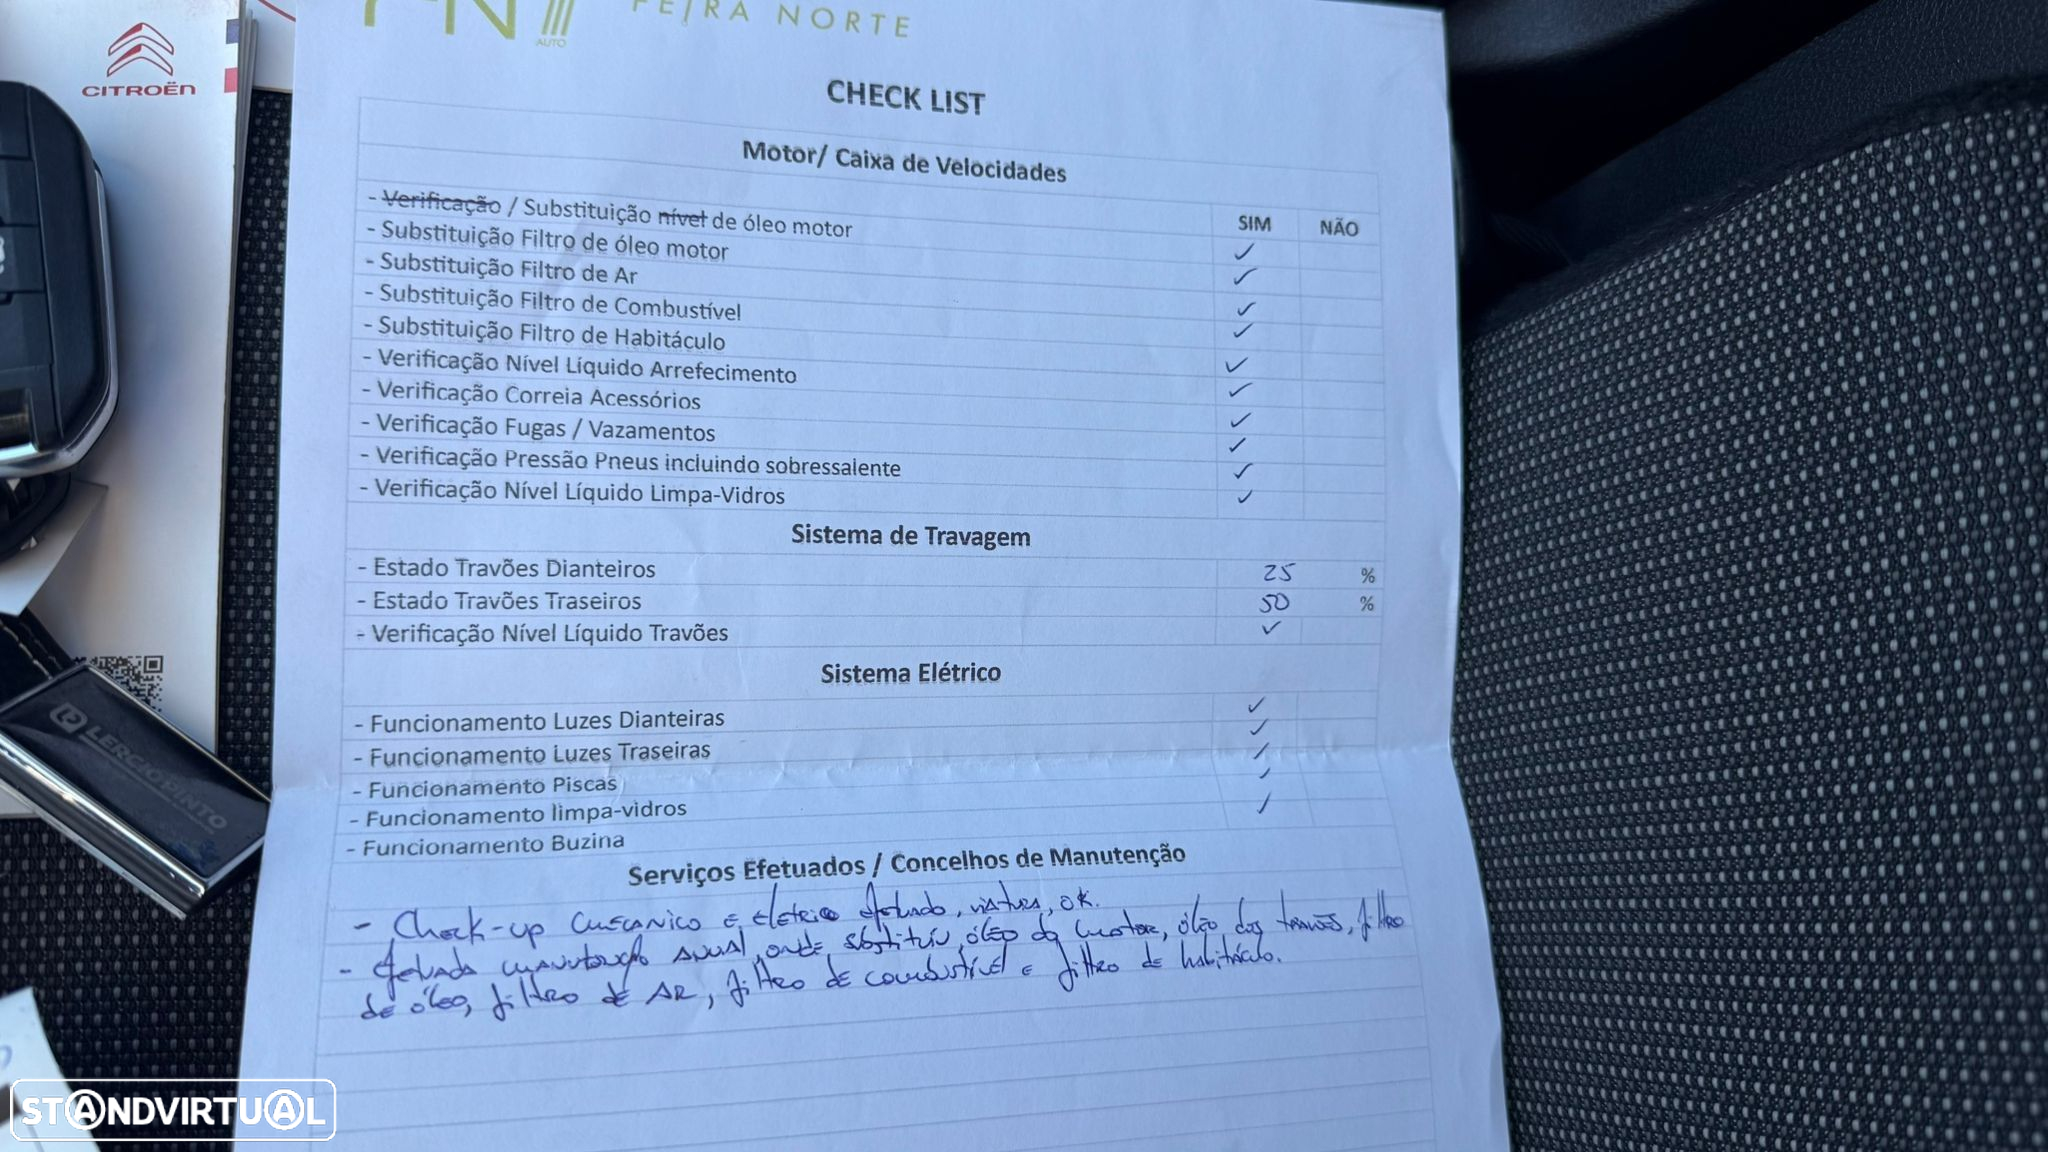 CITROËN
AUTO
FEIRA NORTE
CHECK LIST
Motor/ Caixa de Velocidades
SIM NÃO
- Verificação / Substituição nível de óleo motor ✓
- Substituição Filtro de óleo motor ✓
- Substituição Filtro de Ar ✓
- Substituição Filtro de Combustível ✓
- Substituição Filtro de Habitáculo ✓
- Verificação Nível Líquido Arrefecimento ✓
- Verificação Correia Acessórios ✓
- Verificação Fugas / Vazamentos ✓
- Verificação Pressão Pneus incluindo sobressalente ✓
- Verificação Nível Líquido Limpa-Vidros ✓
Sistema de Travagem
- Estado Travões Dianteiros 25 %
- Estado Travões Traseiros 50 %
- Verificação Nível Líquido Travões ✓
Sistema Elétrico
- Funcionamento Luzes Dianteiras ✓
- Funcionamento Luzes Traseiras ✓
- Funcionamento Piscas ✓
- Funcionamento limpa-vidros ✓
- Funcionamento Buzina ✓
Serviços Efetuados / Concelhos de Manutenção
- Check-up mecânico e eletrico efetuado, viatura, OK.
- efetuada manutenção anual, onde substituiu, óleo do motor, óleo dos travões, filtro
de óleo, filtro de AR, filtro de combustível e filtro de habitáculo.
LERCIOPINTO
STANDVIRTUAL